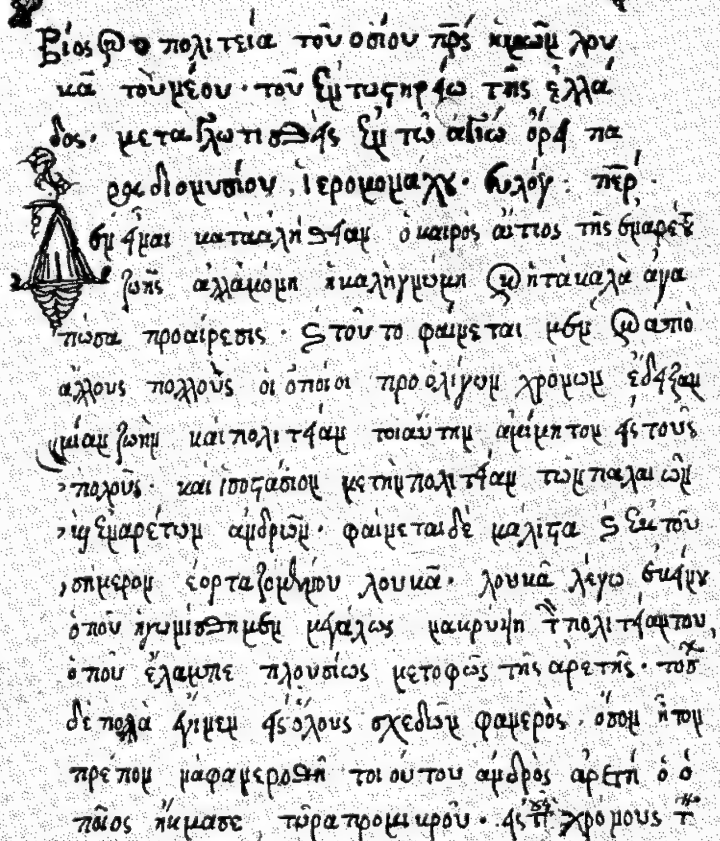 Βίος καὶ πολιτεία τοῦ ὁσίου πρς ἡμῶν λου
κᾶ τοῦ νέου· τοῦ ἐν τῶ στηρίω τῆς ἑλλά
δος· μεταγλωτισθεῖς ἐν τῶ ἁγίω ὄρει πα
ρὰ διονυσίου ἱερομονάχου· εὐλόγ· περ
ἐν εἶναι κατααλήθειαν ὁ καιρὸς αἴτιος τῆς ἐναρέτου
ζωῆς ἀλλὰ μόνη ἡ καλὴ γνώμη καὶ ἡ τὰ καλὰ ἀγα
πῶσα προαίρεσις· καὶ τοῦτο φαίνεται μὲν καὶ ἀπὸ
ἄλλους πολλοὺς οἱ ὁποῖοι προ ὀλίγων χρόνων ἔδειξαν
μίαν ζωὴν καὶ πολιτείαν τοιαύτην ἀμίμητον εἰς τοὺς
πολοὺς· καὶ ἰσοστάσιον με τὴν πολιτείαν τῶν παλαιῶν
ἐναρέτων ἀνδρῶν· φαίνεται δὲ μάλιστα καὶ ἐκ τοῦ
σήμερον ἑορταζομένου λουκᾶ· λουκᾶ λέγω ἐκείνου
ὁποῦ ἠγωνίσθη μὲν μεγάλως πολιτείαν του,
ὁποῦ ἔλαμπε πλουσίως με το φῶς τῆς ἀρετῆς·
δὲ πολλὰ ἔγινεν εἰς ὅλους σχεδὸν φανερὸς· ὅσον ἦτον
πρέπον νὰ φανερωθῆ τοιούτου ἀνδρὸς ἀρετή ὁ ὁ
ποῖος ἤκμασε τώρα προ μικροῦ· εἰς τοὺς χρόνους